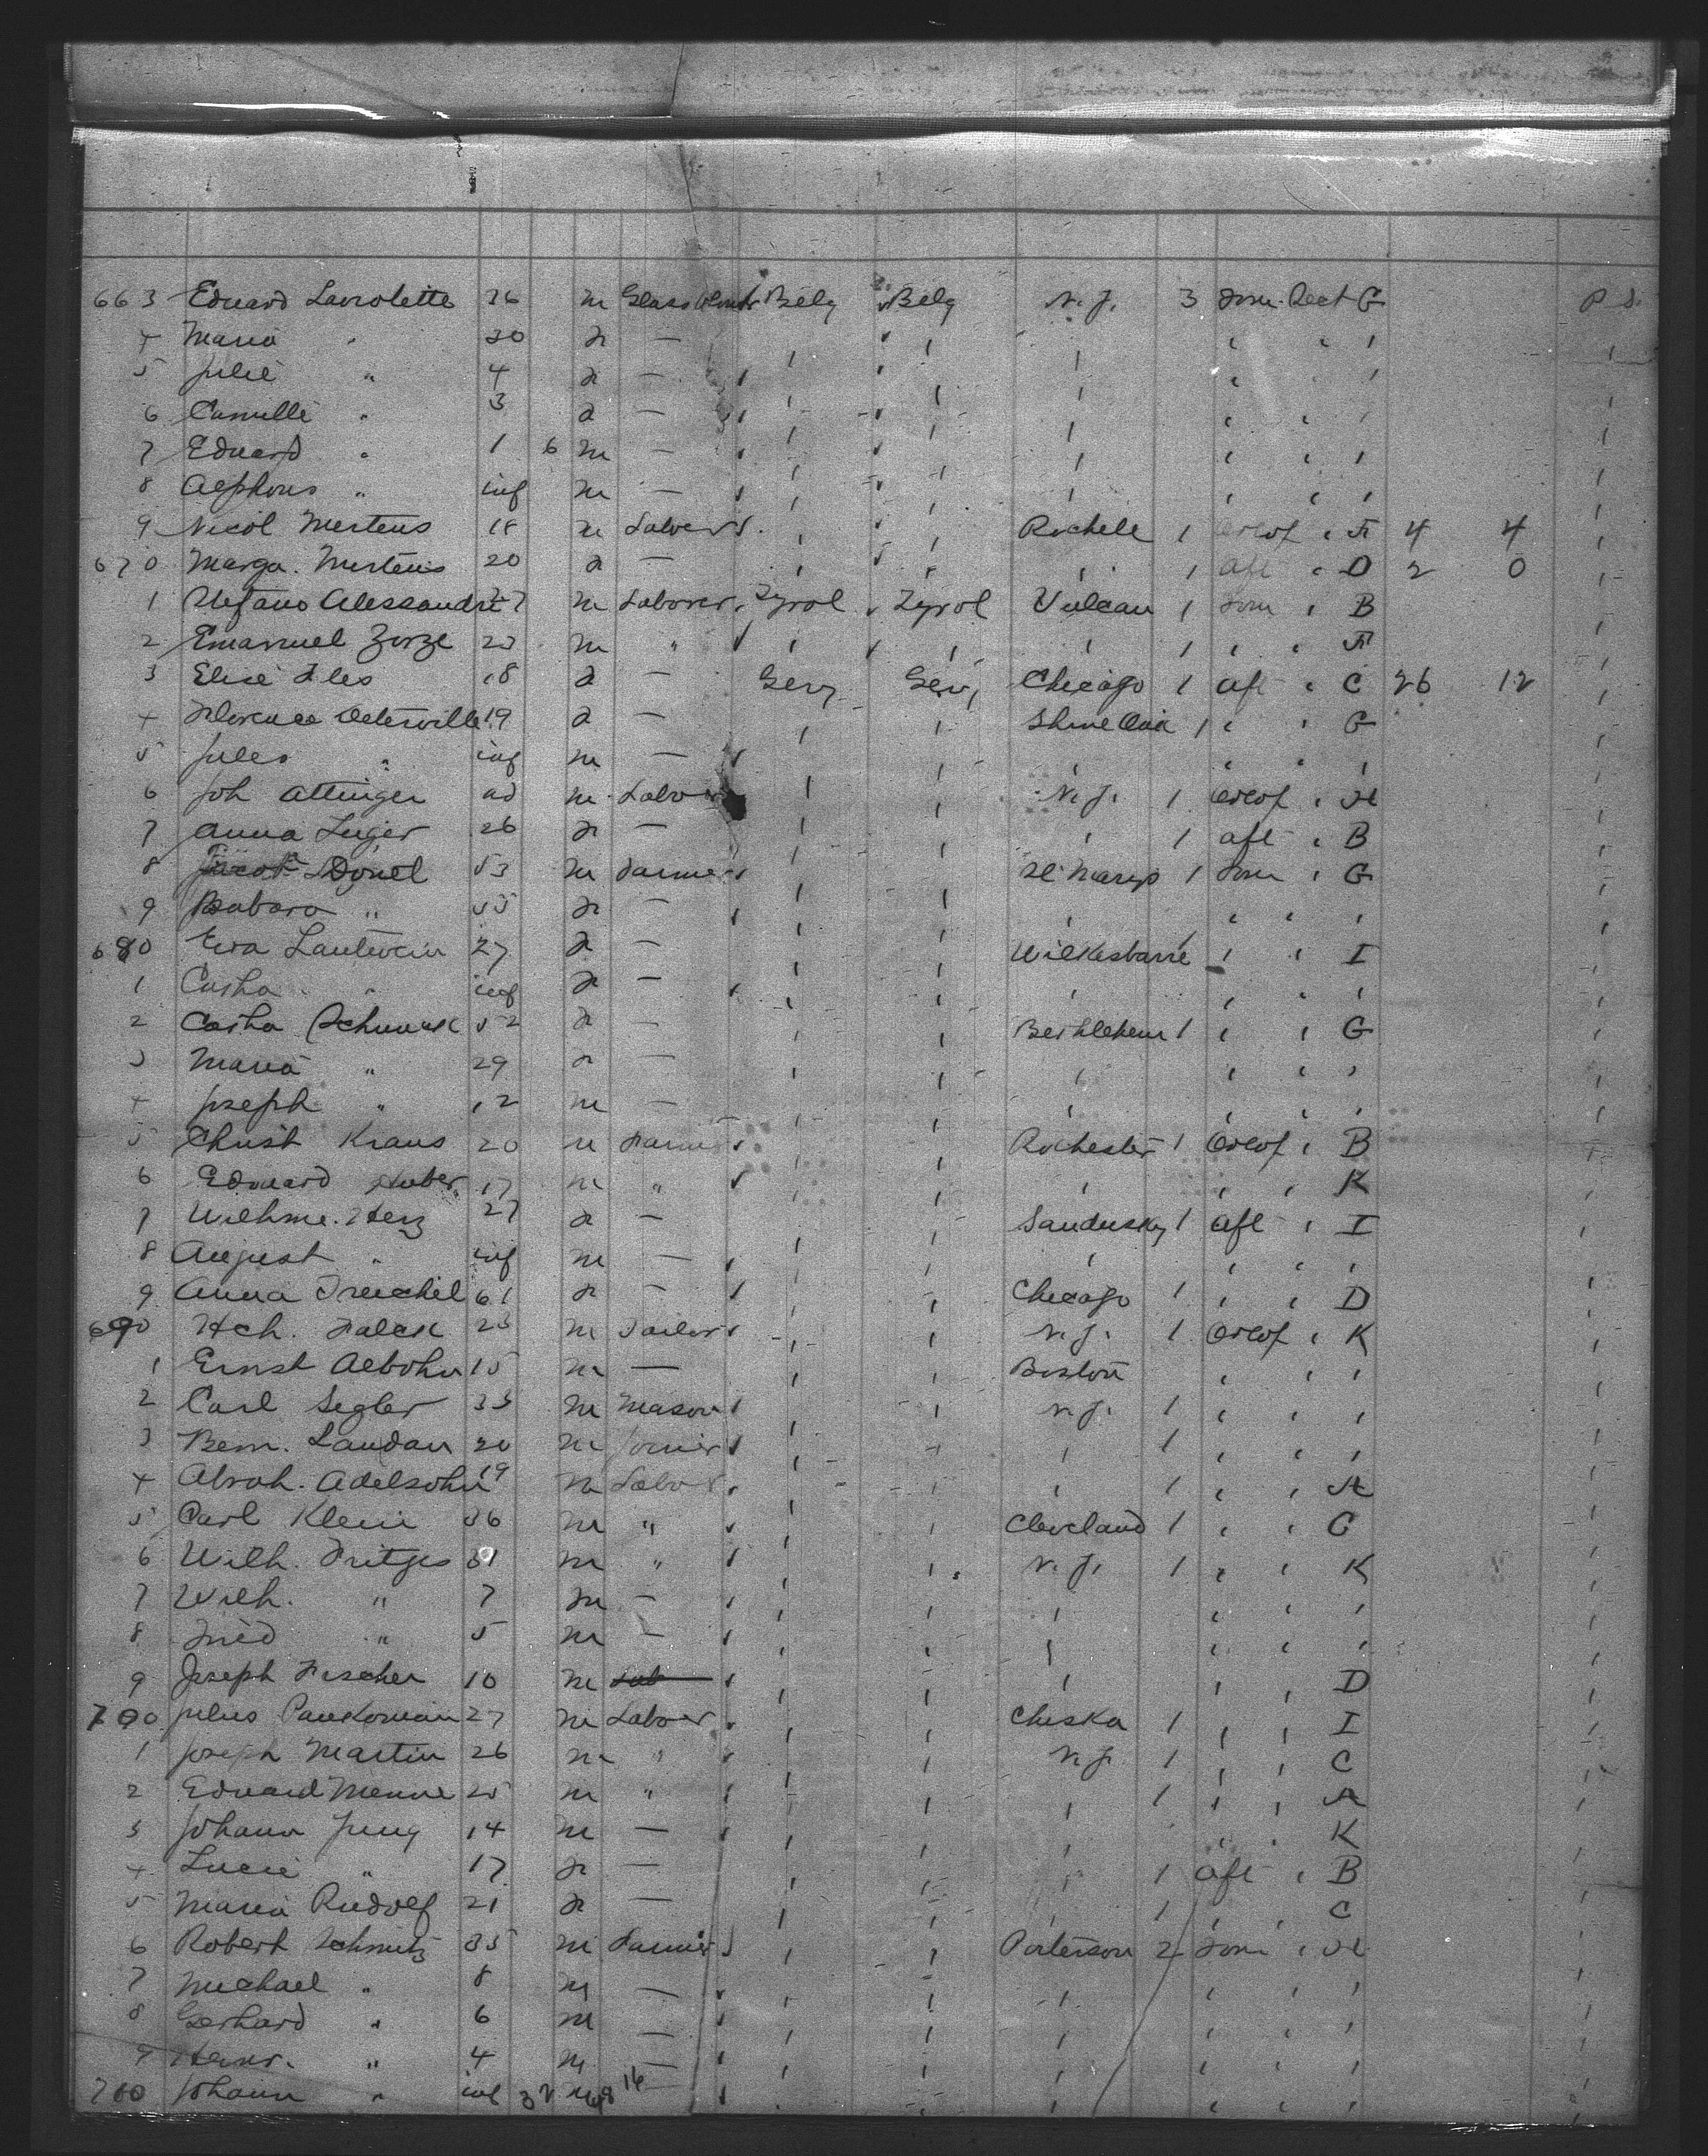 663 Eduard Lavrolette 36 m Glassblowr Belg Belg N.J. 3 Fow. Dect G P. S.
4 Maria " 30 f — ' ' ' ' ' ' '
5 Julie " 4 f — ' ' ' ' ' '
6 Camille " 3 f — ' ' ' ' ' '
7 Eduard " 1 6 m — ' ' ' ' ' '
8 Alphons " inf m — ' ' ' ' ' '
9 Nicol Mertens 18 m Labour ' ' Rochelle 1 ' F 4 4
670 Marga. Mertens 20 f — ' ' ' 1 aft ' D 2 0
1 Alessandri 27 m Laborer Tyrol Tyrol Vulcan 1 ' B
2 Emanuel Zorze 23 m " ' ' ' 1 ' ' F
3 Elise Iles 18 f — Gery Gery Chicago 1 aft ' C 26 12
4 Florence 19 f — ' ' 1 ' ' G
5 Jules " inf m — ' ' ' ' ' '
6 Joh Attinger ad m Labour ' ' N.J. 1 ' H
7 Anna Luger 26 f — ' ' ' 1 aft ' B
8 Donel 53 m Farmer ' ' St. Marys 1 ' G
9 Babara " 55 f — ' ' ' ' ' '
680 Eva Lautwein 27 f — ' ' Wilkesbarre ' ' I
1 Catha " inf f — ' ' ' ' ' '
2 Catha 52 f — ' ' Bethlehem 1 ' ' G
3 Maria " 29 f — ' ' ' ' ' '
4 Joseph " 12 m — ' ' ' ' ' '
5 Christ Kraus 20 m Farmer ' ' Rochester 1 ' B
6 Eduard Huber 17 m " ' ' ' ' ' K
7 Wilhme. Herz 27 f — ' ' Sandusky 1 aft ' I
8 August " inf m — ' ' ' ' ' '
9 Anna Treichel 61 f — ' ' Chicago 1 ' ' D
690 Hch. Falck 23 m Tailor ' ' N.J. 1 ' K
1 Ernst Aebohn 15 m — ' ' Boston ' ' '
2 Carl Segler 33 m Mason ' ' N.J. 1 ' ' '
3 Bern. Landau 20 m Joiner ' ' ' 1 ' ' '
4 Abrah. Adelsohn 19 m Labor ' ' ' 1 ' ' A
5 Carl Klein 36 m " ' ' Cleveland 1 ' ' C
6 Wilh. Fritges 31 m " ' ' N.J. 1 ' ' K
7 Wilh. " 7 m — ' ' ' ' ' '
8 Fried " 5 m — ' ' ' ' ' '
9 Joseph Fischer 10 m Lab ' ' ' ' ' D
700 Julius Pankonian 27 m Labour ' ' Cheska 1 ' ' I
1 Joseph Martin 26 m " ' ' N.J. 1 ' ' C
2 Eduard Menne 25 m " ' ' ' 1 ' ' A
3 Johann Jung 14 m — ' ' ' ' ' K
4 Lucie " 17 f — ' ' ' 1 aft ' B
5 Maria Rudolf 21 f — ' ' ' 1 ' ' C
6 Robert Schmitz 35 m Farmer ' ' Paterson 2 ' H
7 Michael " 8 m — ' ' ' ' ' '
8 Gerhard " 6 m — ' ' ' ' ' '
9 Heinr. " 4 m — ' ' ' ' ' '
710 Johann " inf 32 m 48 16 — ' ' ' ' ' '